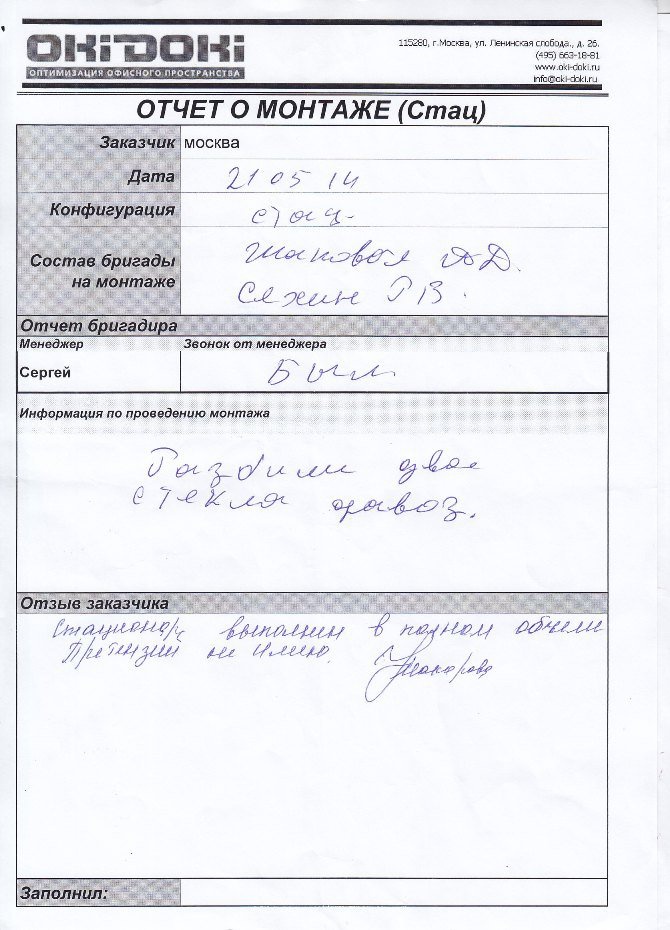 OKIDOKI
ОПТИМИЗАЦИЯ ОФИСНОГО ПРОСТРАНСТВА
115280, г.Москва, ул. Ленинская слобода., д. 26.
(495) 663-18-81
www.oki-doki.ru
info@oki-doki.ru
ОТЧЕТ О МОНТАЖЕ (Стац)
Заказчик москва
Дата 21 05 14
Конфигурация стац-
Состав бригады
на монтаже
Сяхин Г В.
Отчет бригадира
Менеджер Звонок от менеджера
Сергей Был
Информация по проведению монтажа
Разбили два
стекла
Отзыв заказчика
Стационар выполнен в полном обьеми
Претензии не имею.
Заполнил: